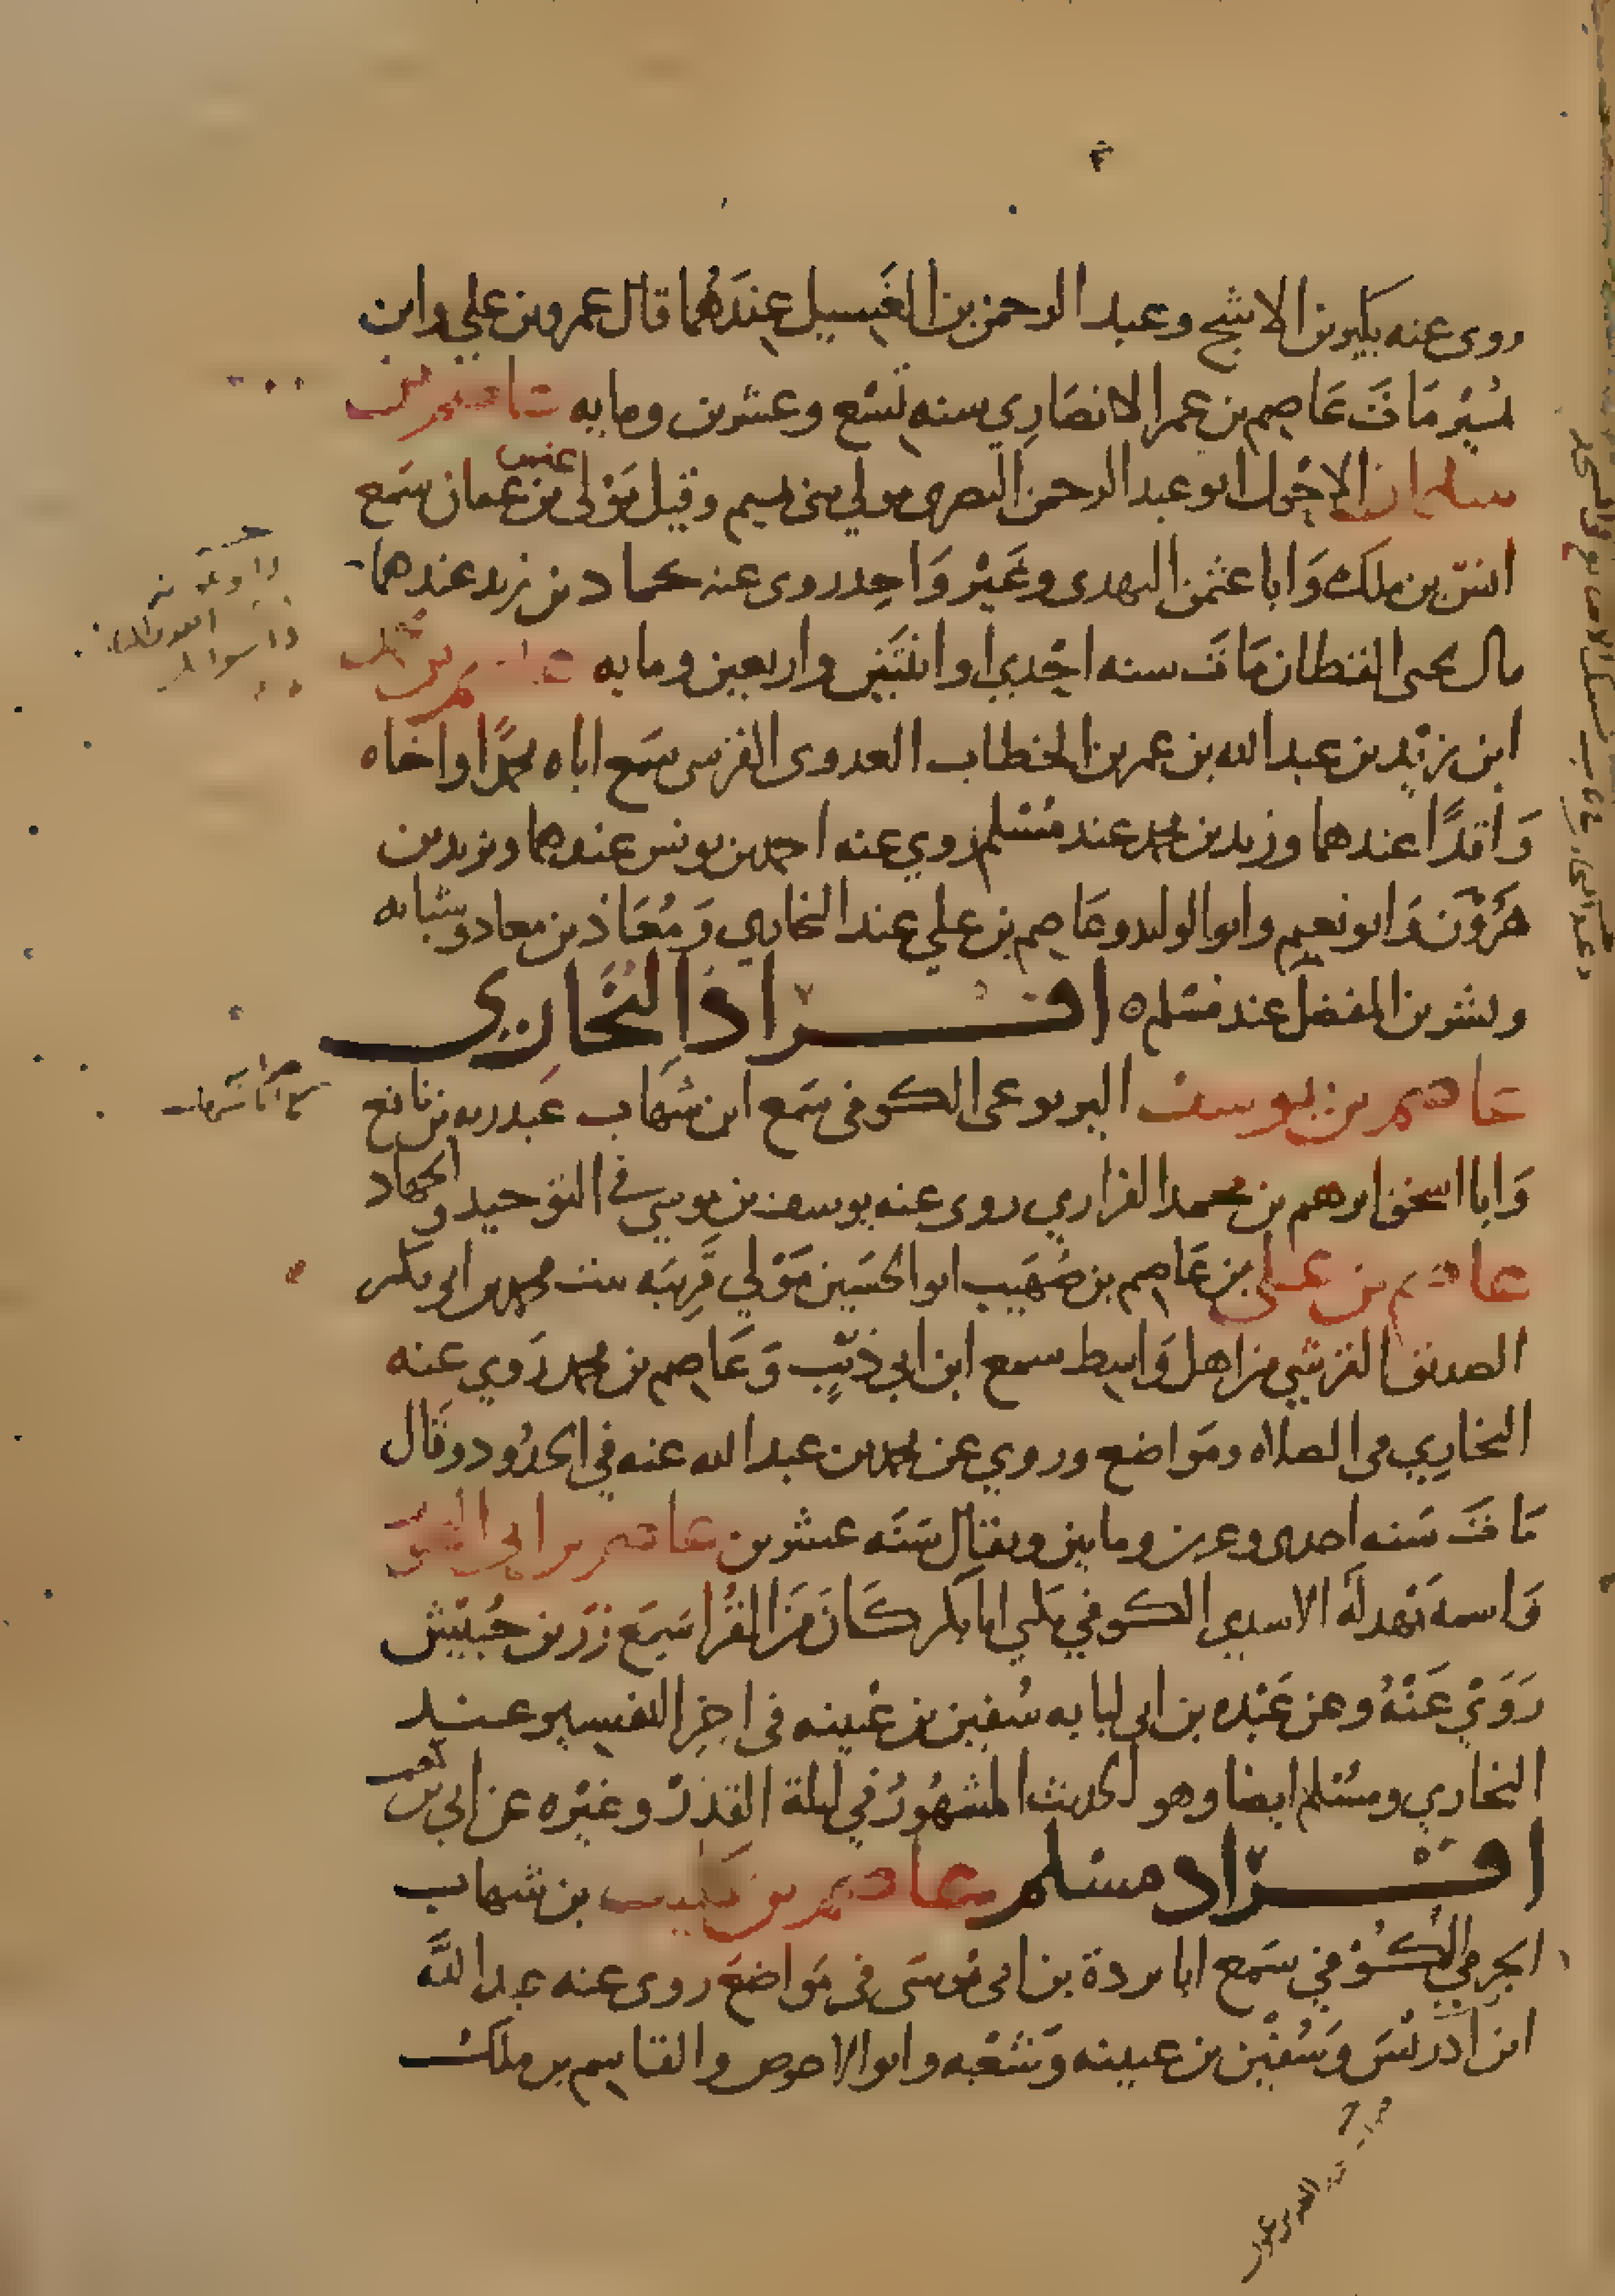 روى عنه بكير بن الاشج وعبد الرحمن بن الغسيل عندهما قال عمرو بن علي وابن
نمير مات عاصم بن عمر الانصاري سنه تسع وعشرين ومايه عاصم بن
سليمان الاحول ابو عبد الرحمن البصرى مولى بنى تميم وقيل مولى بن عثمان سمع
انس بن ملك وابا عثمن النهدى وغير واحد روى عنه حماد بن زيد عندهما
قال يحيى القطان مات سنه احدي او اثنتين واربعين ومايه عاصم بن محمد
ابن زيد بن عبد الله بن عمر بن الخطاب العدوى القرشى سمع اباه محمدا واخاه
واقدا عندهما وزيد بن محمد عند مسلم روي عنه احمد بن يونس عندهما ويزيد بن
هرون وابو نعيم وابو الوليد وعاصم بن علي عند البخاري ومعاذ بن معاذ وشبابه
وبشر بن المفضل عند مسلم ه افراد البخاري
عاصم بن يوسف اليربوعى الكوفى سمع ابن شهاب عبد ربه بن نافع
وابا اسحق ابرهيم بن محمد الفزاري روى عنه يوسف بن موسي في التوحيد والجهاد
عاصم بن على بن عاصم بن صهيب ابو الحسين مولي قريبه بنت محمد بن ابى بكر
الصديق القرشي من اهل واسط سمع ابن ابي ذئب وعاصم بن محمد روي عنه
البخاري فى الصلاه ومواضع وروي عن محمد بن عبد الله عنه في الحدود وقال
مات سنه احدى وعرين وماتين ويقال سنه عشرين عاصم بن ابى النجود
واسمه بهدله الاسدي الكوفي يكني ابا بكر كان من القرا سمع زر بن حبيش
روي عنه وعن عبده بن ابى لبابه سفين بن عيينه في اخر التفسير عند
البخاري ومسلم ايضا وهو الحديث المشهور في ليلة القدر وغيره عن ابي بن كعب
افراد مسلم عاصم بن كليب بن شهاب
الجرمي الكوفي سمع ابا بردة بن ابى موسى فى مواضع روى عنه عبد الله
ابن ادريس وسفين بن عيينه وشعبه وابو الاحوص والقاسم بن ملك